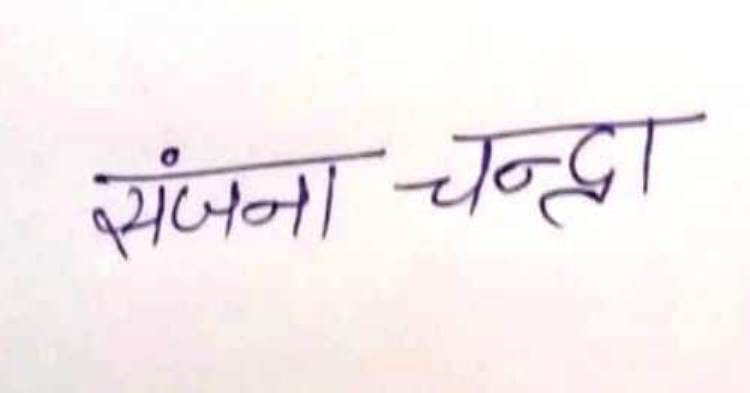 संजना चन्द्रा